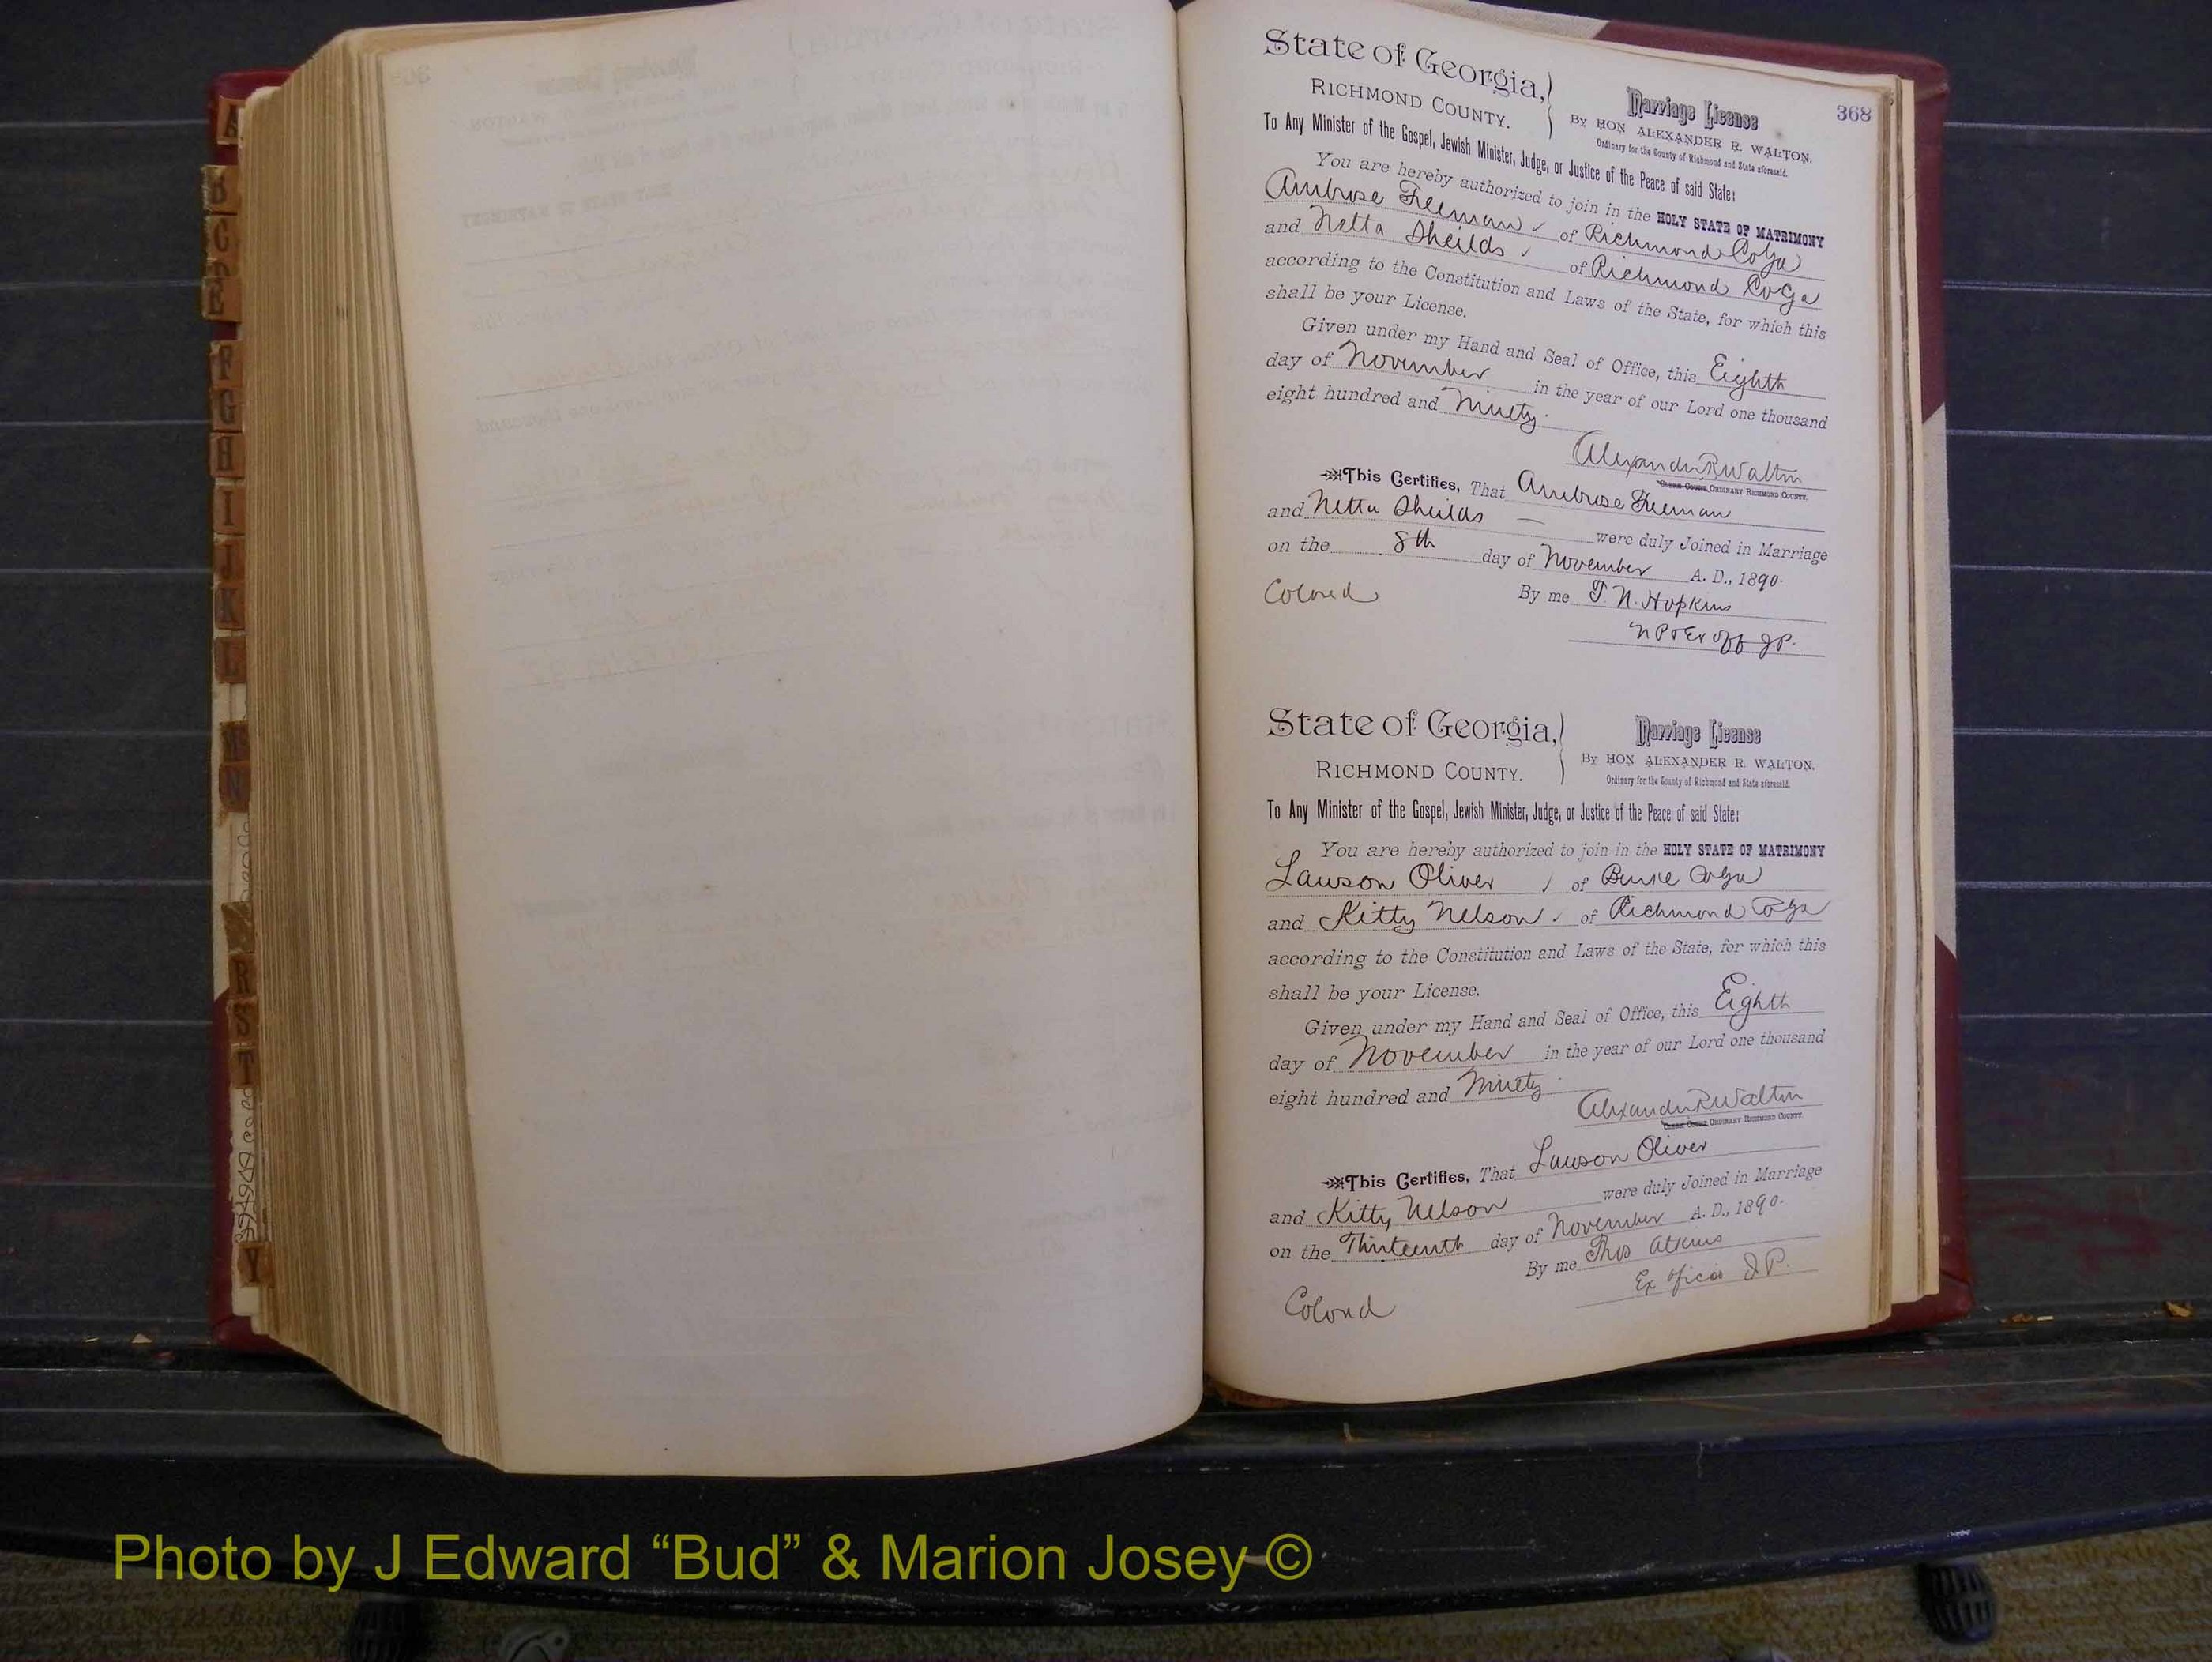 368
State of Georgia,
RICHMOND COUNTY.
Marriage License
By HON ALEXANDER R. WALTON,
Ordinary for the County of Richmond and State aforesaid.
To Any Minister of the Gospel, Jewish Minister, Judge, or Justice of the Peace of said State:
You are hereby authorized to join in the HOLY STATE OF MATRIMONY
Ambrose Freeman of Richmond Co Ga
and Netta Sheilds of Richmond Co Ga
according to the Constitution and Laws of the State, for which this
shall be your License.
Given under my Hand and Seal of Office, this Eighth
day of November in the year of our Lord one thousand
eight hundred and Ninety.
Alexander R Walton
CLERK COURT, ORDINARY RICHMOND COUNTY.
This Certifies, That Ambrose Freeman
and Netta Sheilds — were duly Joined in Marriage
on the 8th day of November A. D., 1890.
Colored By me T. N. Hopkins
N P & Ex off J.P.
State of Georgia,
RICHMOND COUNTY.
Marriage License
By HON ALEXANDER R. WALTON,
Ordinary for the County of Richmond and State aforesaid.
To Any Minister of the Gospel, Jewish Minister, Judge, or Justice of the Peace of said State:
You are hereby authorized to join in the HOLY STATE OF MATRIMONY
Lawson Oliver of Burke Co Ga
and Kitty Nelson of Richmond Co Ga
according to the Constitution and Laws of the State, for which this
shall be your License.
Given under my Hand and Seal of Office, this Eighth
day of November in the year of our Lord one thousand
eight hundred and Ninety.
Alexander R Walton
CLERK COURT, ORDINARY RICHMOND COUNTY.
This Certifies, That Lawson Oliver
and Kitty Nelson were duly Joined in Marriage
on the Thirteenth day of November A. D., 1890.
By me Thos Atkins
Ex oficio J.P.
Colored
A
B
C
D
E
F
G
H
I
J
K
L
M
N
R
S
T
Y
Photo by J Edward “Bud” & Marion Josey ©